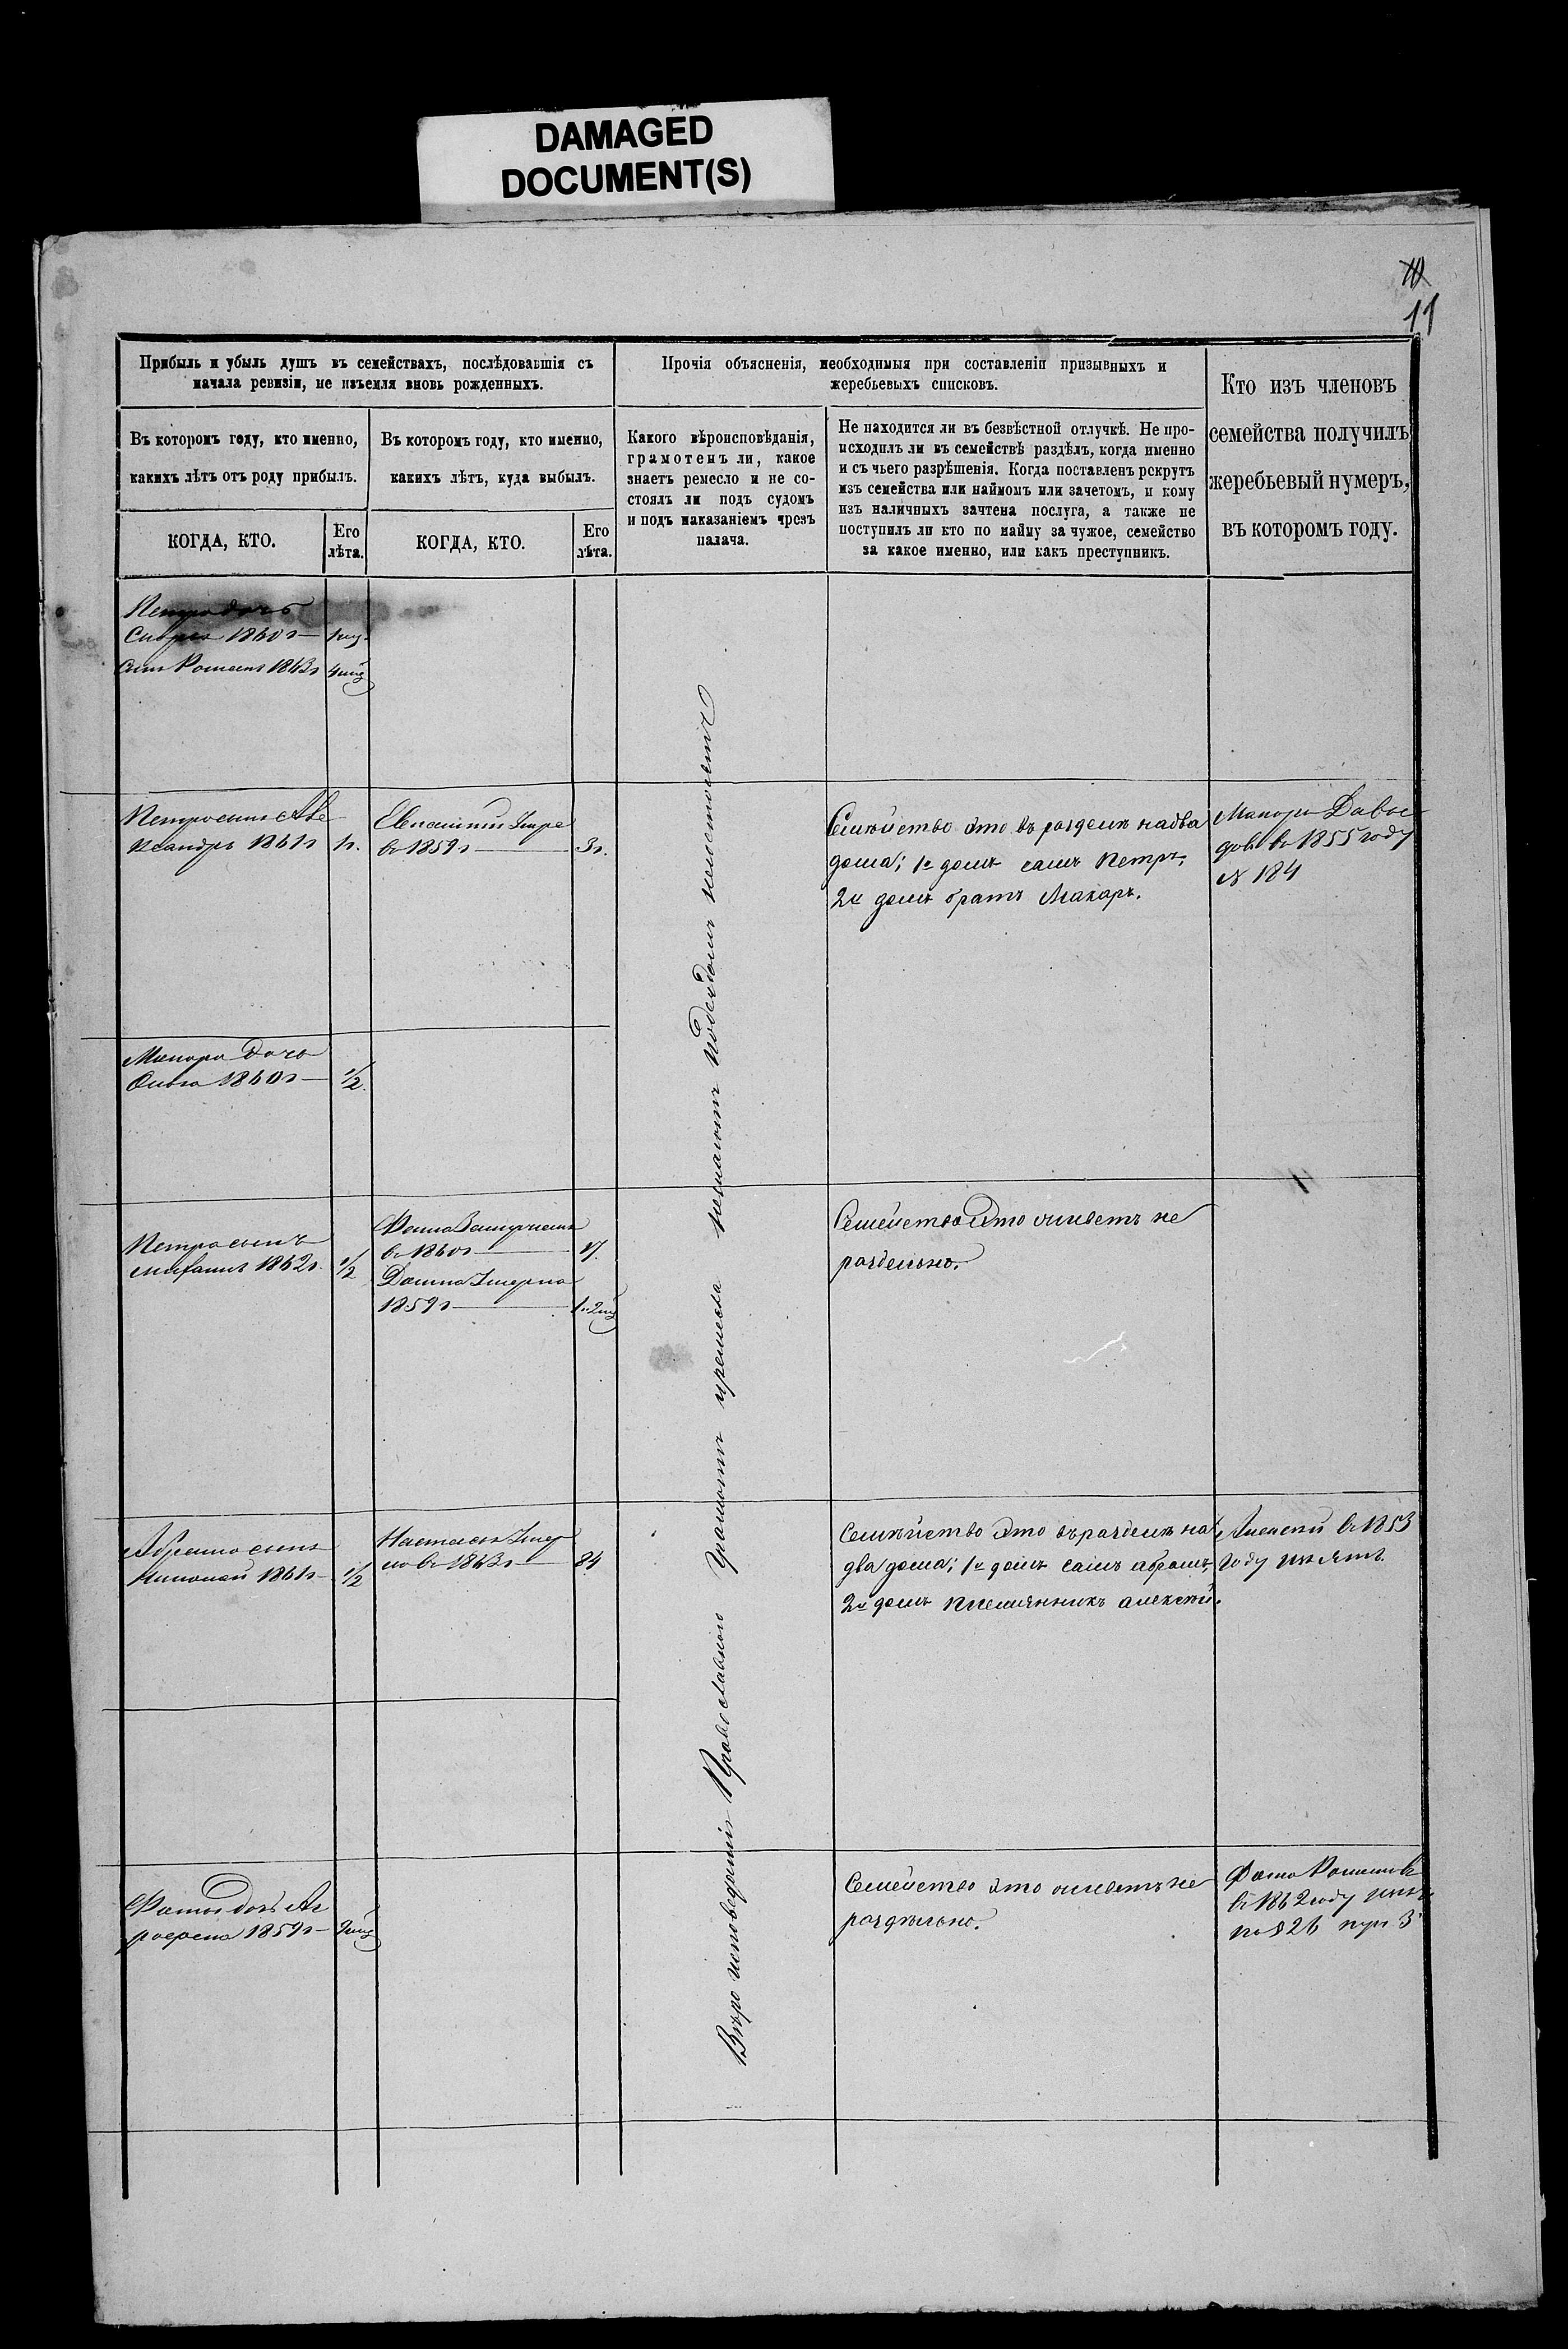 DAMAGED
DOCUMENT(S)
11
Прибыль и убыль душъ въ семействахъ, послѣдовавшія съ
начала ревизіи, не изъемля вновь рожденныхъ.
Прочія объясненія, необходимыя при составленіи призывныхъ и
жеребьевыхъ списковъ.
Кто изъ членовъ
семейства получилъ
жеребьевый нумеръ,
въ которомъ году.
Въ которомъ году, кто именно,
какихъ лѣтъ отъ роду прибылъ.
Въ которомъ году, кто именно,
какихъ лѣтъ, куда выбылъ.
Какого вѣроисповѣданія,
грамотенъ ли, какое
знаетъ ремесло и не со-
стоялъ ли подъ судомъ
и подъ наказаніемъ чрезъ
палача.
Не находится ли въ безвѣстной отлучкѣ. Не про-
исходилъ ли въ семействѣ раздѣлъ, когда именно
и съ чьего разрѣшенія. Когда поставленъ рекрутъ
изъ семейства или наймомъ или зачетомъ, и кому
изъ наличныхъ зачтена послуга, а также не
поступилъ ли кто по найму за чужое, семейство
за какое именно, или какъ преступникъ.
КОГДА, КТО.
Его
лѣта.
КОГДА, КТО.
Его
лѣта.
Петра дочь
1860г
сынъ Романъ 1863г 4
Петра сынъ Але
ксандръ 1861г 1г.
въ 1859г 3г.
Семейство это въ разделѣ на два
дома; 1й домъ самъ Петръ,
2й домъ братъ Макаръ.
Макаръ Давы
довъ въ 1855 году
№ 184
Макара дочь
1860г 1/2.
Петра сынъ
1862г. 1/2
въ 1860г
1859г
Семейство это живетъ не
раздельно.
Абрама сынъ
Николай 1861г 1/2
Настасья Умер
ла въ 1863г 84
Семейство это въ разделѣ на
два дома; 1й домъ самъ абрамъ,
2й домъ племянникъ алексѣй.
Алексѣй въ 1853
году
Вѣро исповеданія Православнаго грамотѣ и ремесла незнаютъ подсудомъ несостоятъ
дочь Аг
рафена 1859г
Семейство это живетъ не
раздѣльно.
въ 1862 году